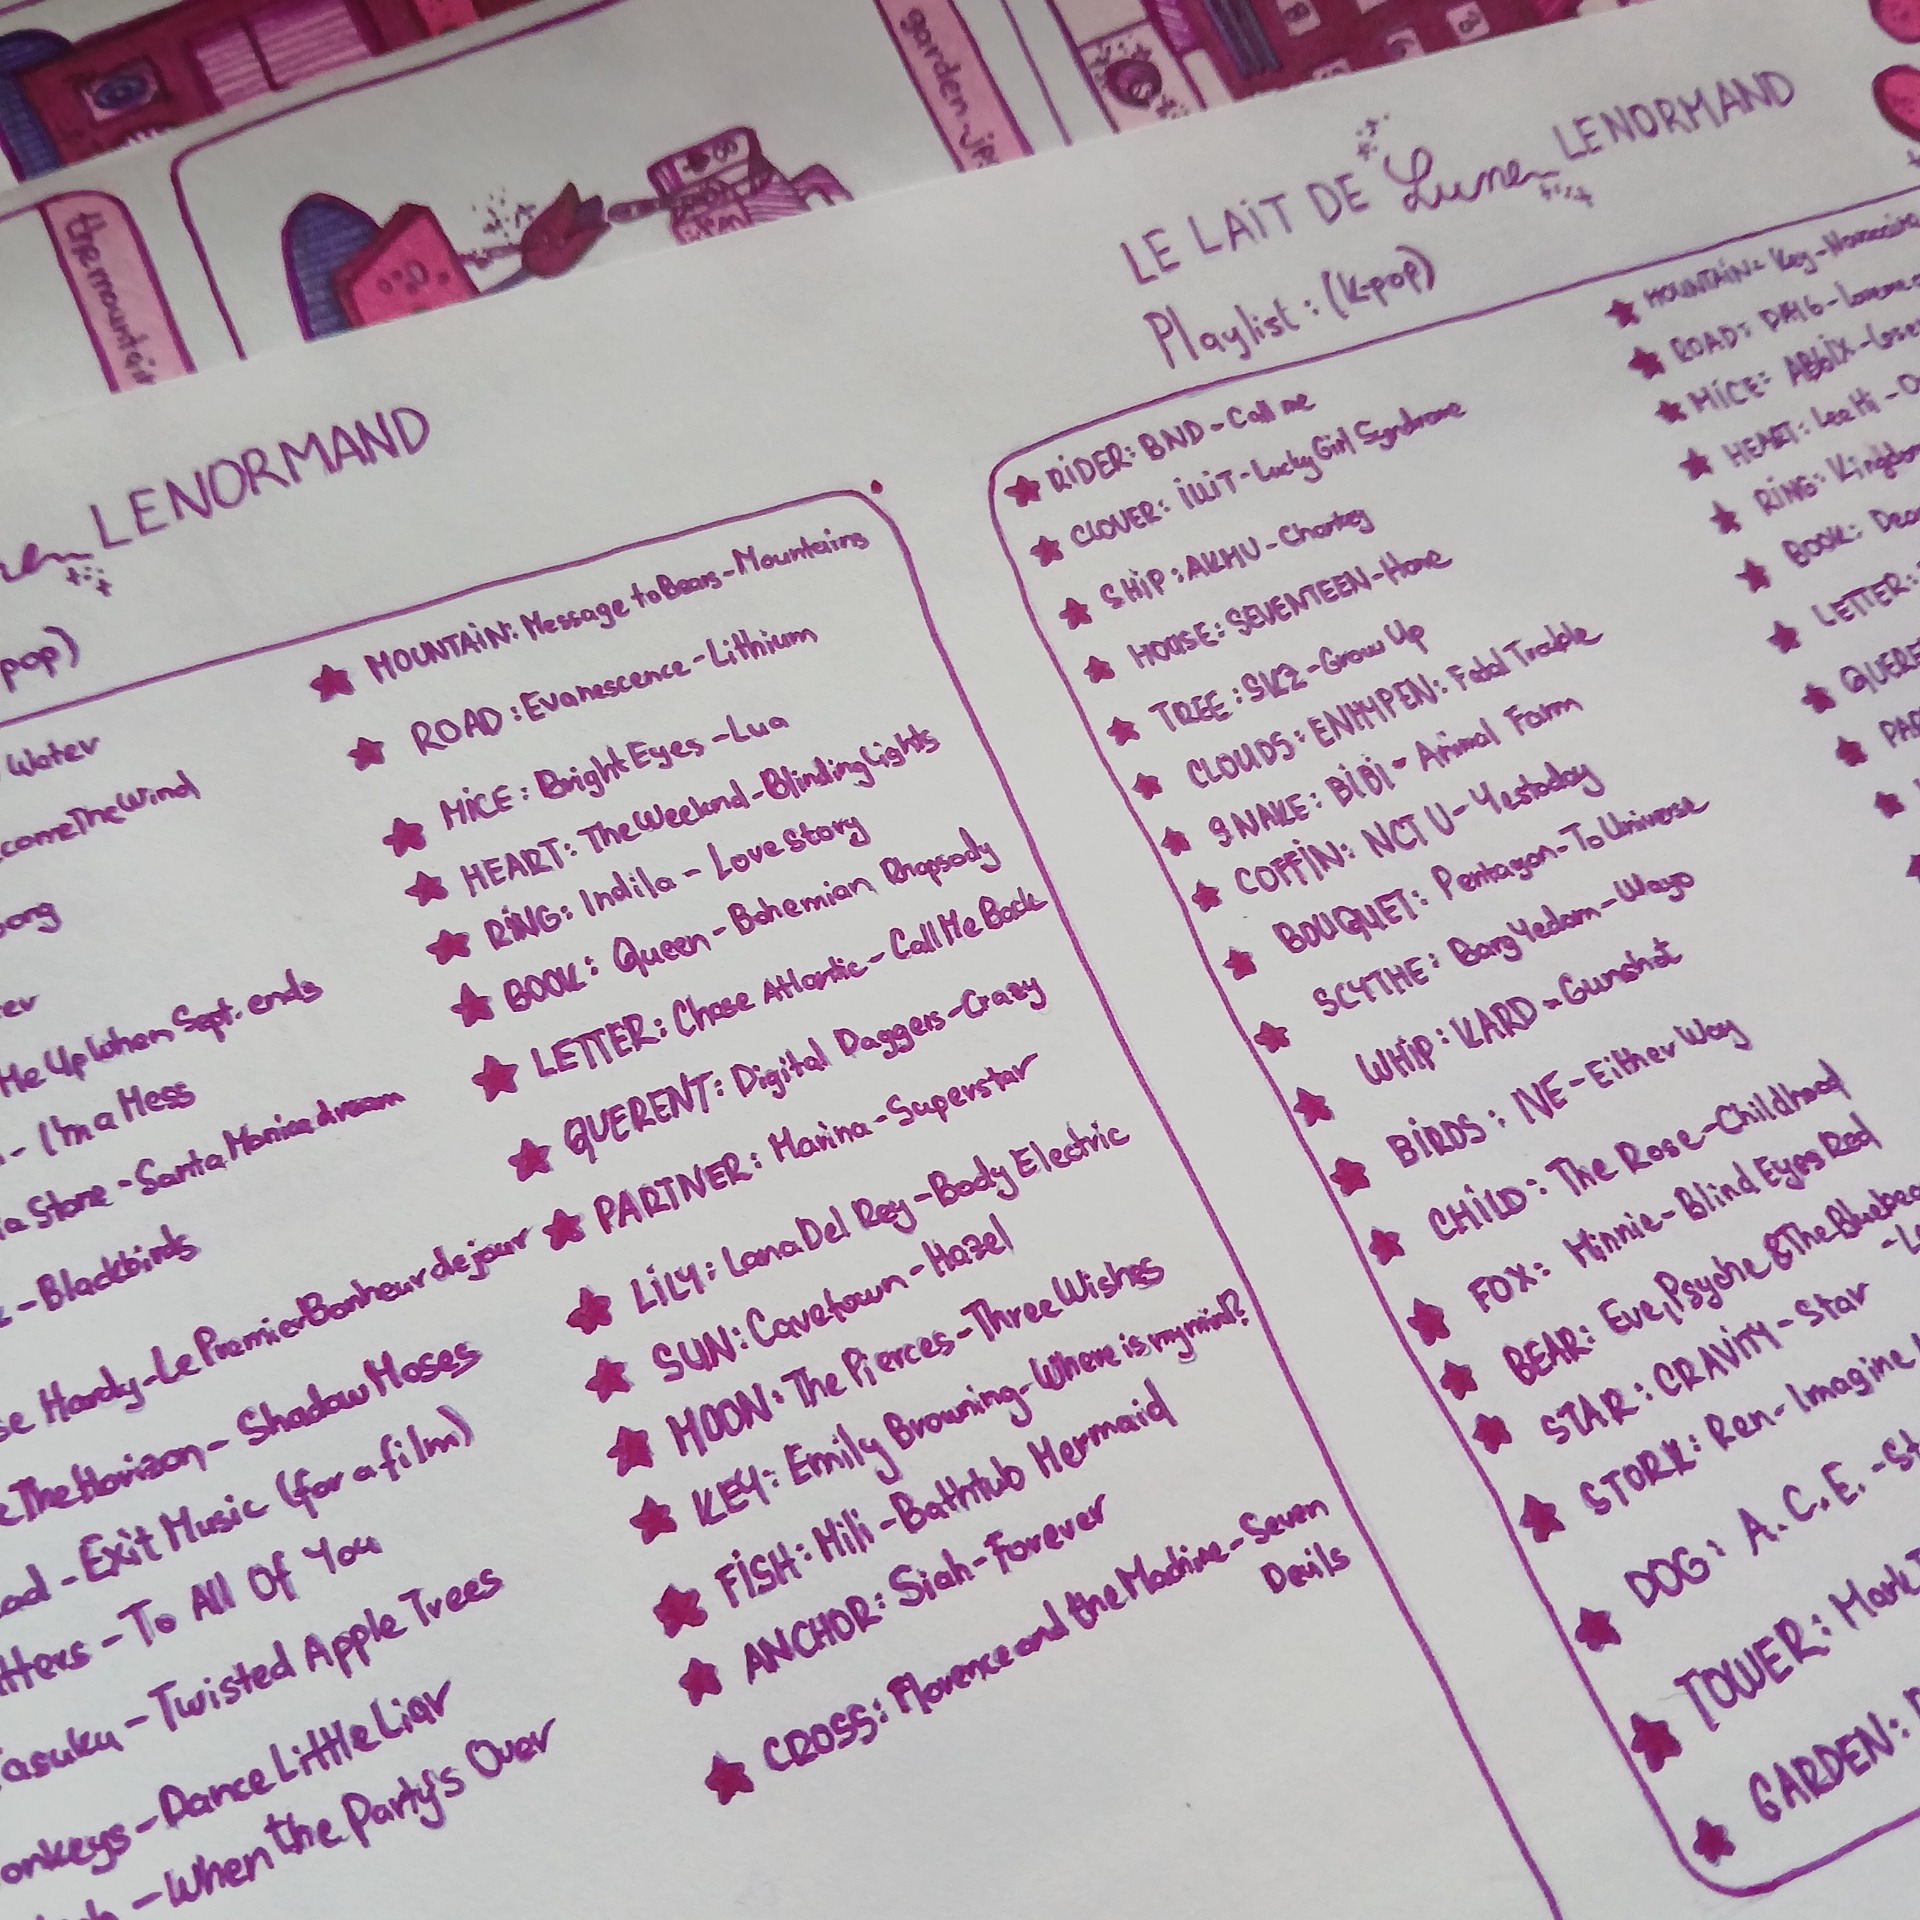 garden.jp
the mountain
LENORMAND
pop)
Water
comeTheWind
song
er
Me Up When Sept. ends
- I'm a Mess
ia Stone - Santa Monica dream
- Blackbirds
se Hardy - Le Premier Bonheur de jour
e The Horizon - Shadow Moses
ad - Exit Music (for a film)
tters - To All Of You
asuku - Twisted Apple Trees
onkeys - Dance Little Liar
sh - When the Party's Over
MOUNTAIN: Message to Bears - Mountains
ROAD: Evanescence - Lithium
MICE: Bright Eyes - Lua
HEART: The Weeknd - Blinding Lights
RING: Indila - Love Story
BOOK: Queen - Bohemian Rhapsody
LETTER: Chase Atlantic - Call Me Back
QUERENT: Digital Daggers - Crazy
PARTNER: Marina - Superstar
LILY: Lana Del Rey - Body Electric
SUN: Cavetown - Hazel
MOON: The Pierces - Three Wishes
KEY: Emily Browning - Where is my mind?
FISH: Mili - Bathtub Mermaid
ANCHOR: Siah - Forever
CROSS: Florence and the Machine - Seven
Devils
LE LAIT DE Lune LENORMAND
Playlist: (K-pop)
RIDER: BND - Call me
CLOVER: ILLIT - Lucky Girl Syndrome
SHIP: AKMU - Chantey
HOUSE: SEVENTEEN - Home
TREE: SKZ - Grow Up
CLOUDS: ENHYPEN: Fatal Trouble
SNAKE: BIBI - Animal Farm
COFFIN: NCT U - Yestoday
BOUQUET: Pentagon - To Universe
SCYTHE: Bang Yedam - Wayo
WHIP: KARD - Gunshot
BIRDS: IVE - Either Way
CHILD: The Rose - Childhood
FOX: Minnie - Blind Eyes Red
BEAR: Eve, Psyche & The Bluebea
STAR: CRAVITY - Star
STORK: Ren - Imagine
DOG: A.C.E. - St
TOWER: Mark T
GARDEN:
MOUNTAIN: Key - 
ROAD: DAY6 - 
MICE: AB6IX - Lose
HEART: Lee Hi - O
RING: Kingdom
BOOK: Drea
LETTER:
QUERE
PAR